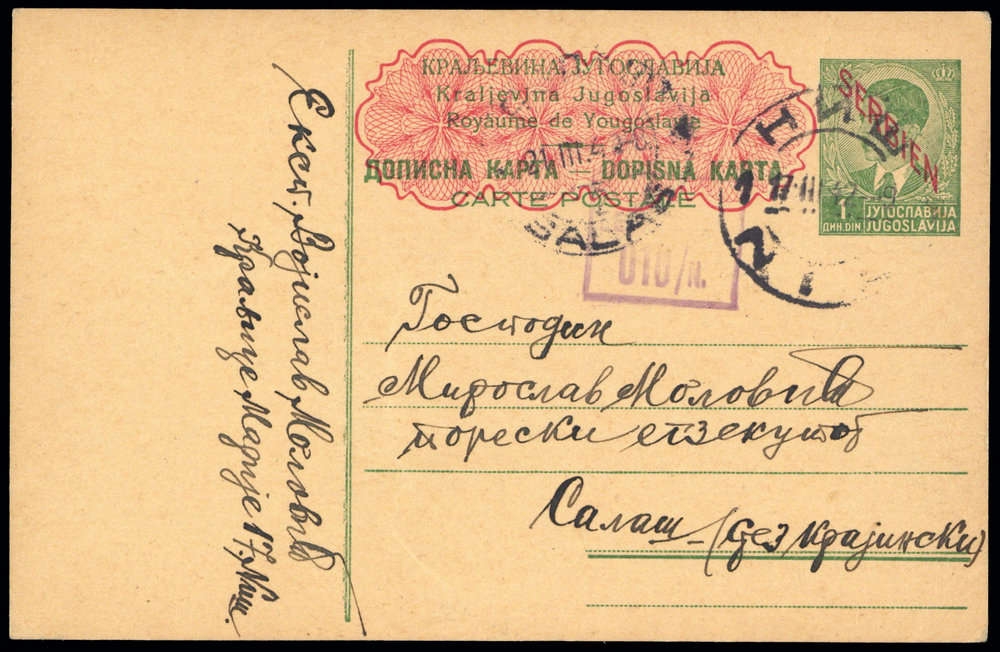 КРАЉЕВИНА ЈУГОСЛАВИЈА
Kraljevina Jugoslavija
Royaume de Yougoslavie
ДОПИСНА КАРТА — DOPISNA KARTA
CARTE POSTALE
SERBIEN
1 ЈУГОСЛАВИЈА
ДИН.DIN JUGOSLAVIJA
SALAŠ
НИШ
1
010/n.
Господин
Мирослав Моловић
порески егзекутор
Салаш (срез крајински)
Војислав Моловић
Краљице Марије 17, Ниш.